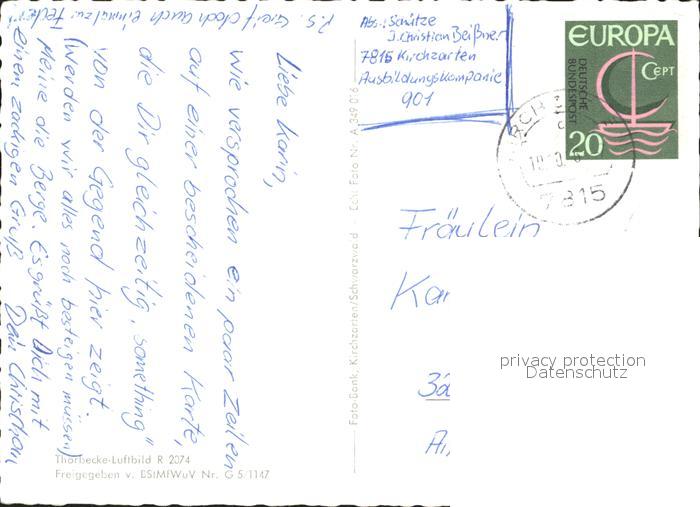 P.S. Greif doch auch einmal zur Feder!
Liebe Karin,
wie versprochen ein paar Zeilen
auf einer bescheidenen Karte,
die Dir gleichzeitig "something"
von der Gegend hier zeigt.
(Werden wir alles noch besteigen müssen)
Meine die Berge. Es grüßt Dich mit
einen zackigen Gruß Dein Christian
Thorbecke-Luftbild R 2074
Freigegeben v. BStMfWuV Nr. G 5/1147
Foto-Bank, Kirchzarten/Schwarzwald Ech. Foto Nr. A 349 016
Abs.: Schütze
J. Christian Beißner
7815 Kirchzarten
Ausbildungskompanie
901
EUROPA
CEPT
DEUTSCHE
BUNDESPOST
20
7815
Fräulein
Kar
privacy protection
Datenschutz